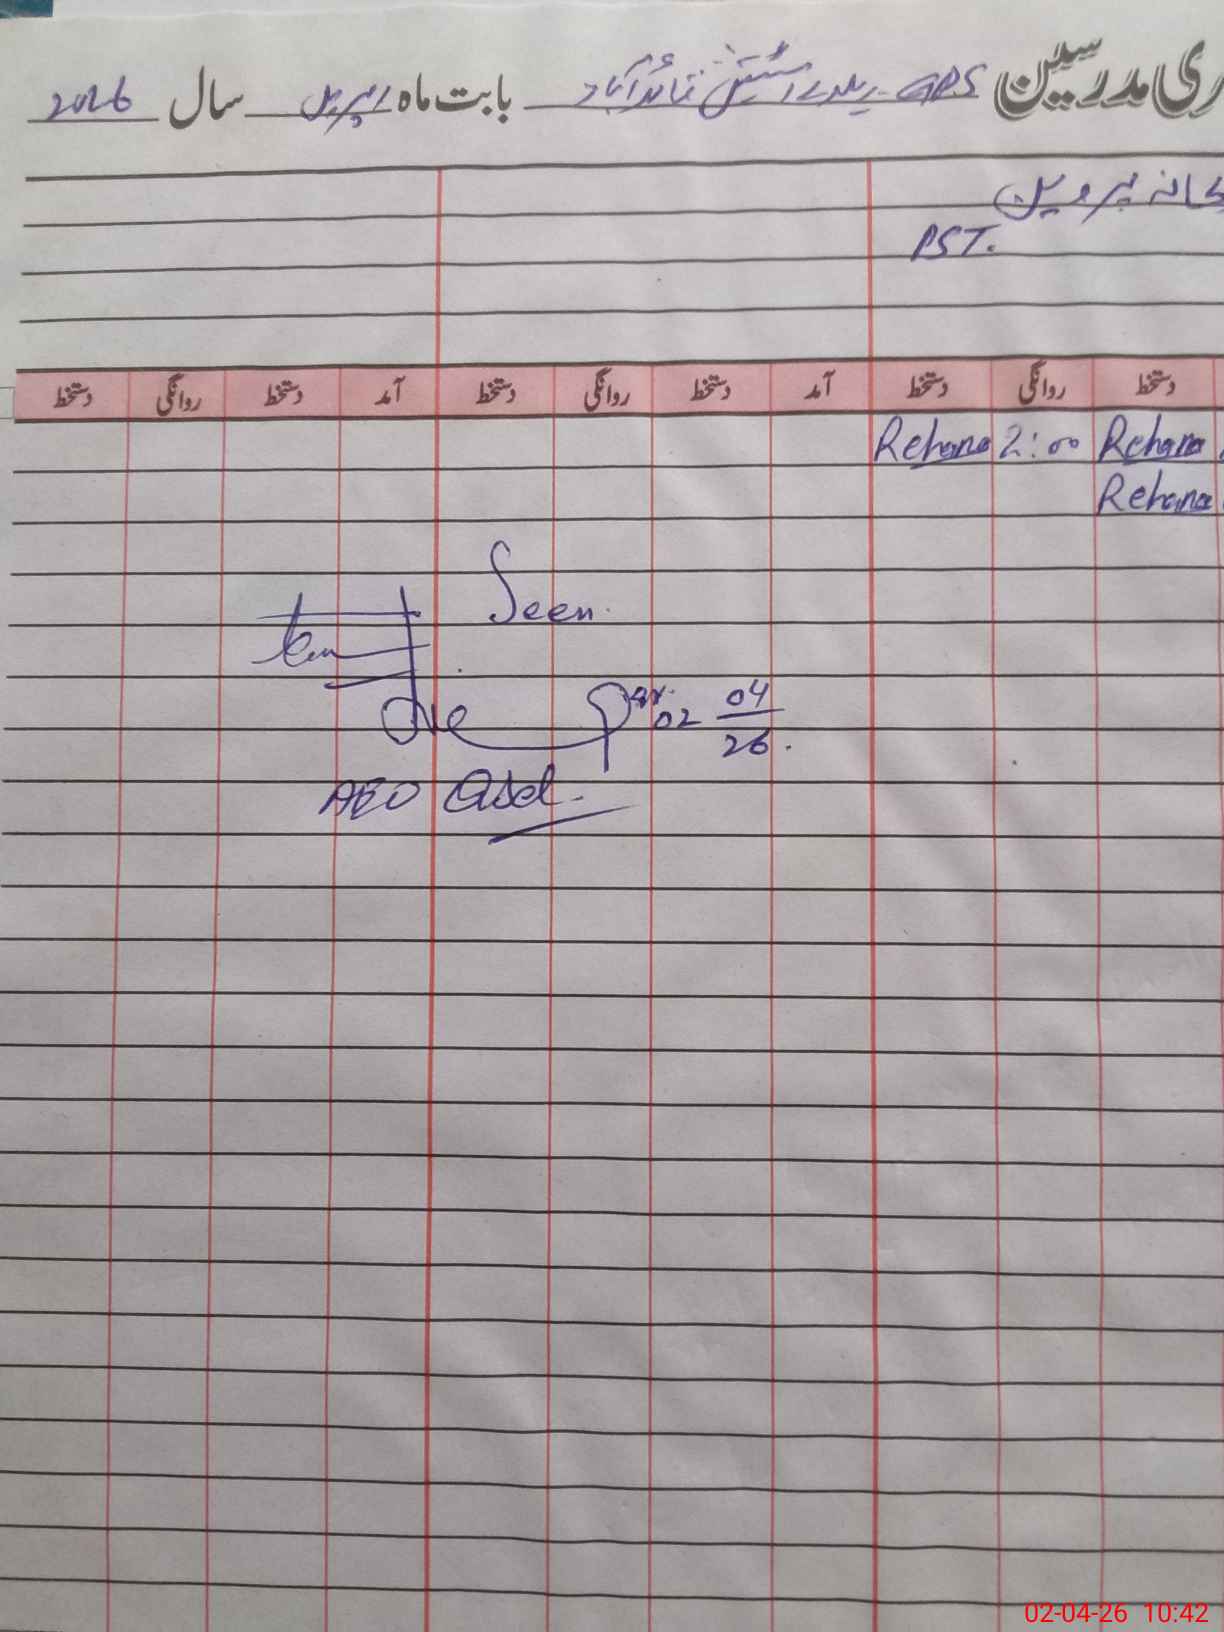 ری مدرسین GPS ریلوے اسٹیشن قائدآباد بابت ماہ اپریل سال 2026
پروین
PST.
دستخط روانگی دستخط آمد دستخط روانگی دستخط آمد دستخط روانگی دستخط
Rehana 2:00 Rehana
Rehana
Seen.
02 04/26.
AEO QBd.
02-04-26 10:42